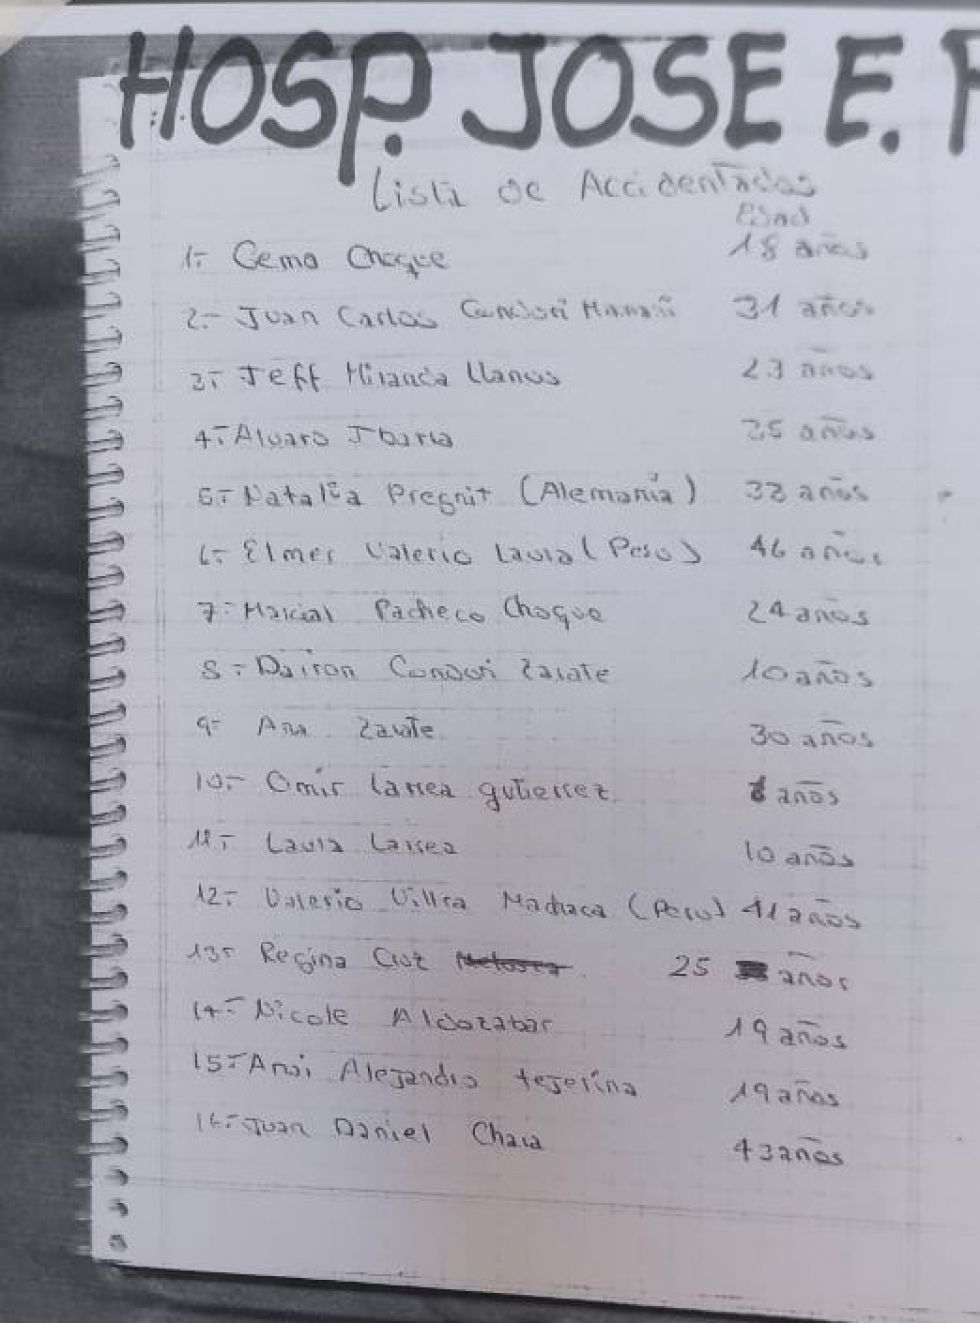 HOSP. JOSE E.
Lista de Accidentados
Edad
1.- Gema Choque 18 años
2.- Juan Carlos Condori Mamani 31 años
3.- Jeff Miranda Llanos 23 años
4.- Alvaro Ibarra 25 años
5.- Natalia Pregnit (Alemania) 33 años
6.- Elmer Valerio Laura (Peru) 46 años
7.- Marcial Pacheco Choque 24 años
8.- Dairon Condori Zarate 10 años
9- Ana Zarate 30 años
10.- Omir Larrea gutierrez años
11.- Laura Larrea 10 años
12.- Valerio Villca Machaca (Peru) 41 años
13- Regina Cruz 25 años
14.- Nicole Aldazabar 19 años
15.- Alejandro tejerina 19 años
16.- Juan Daniel 43 años